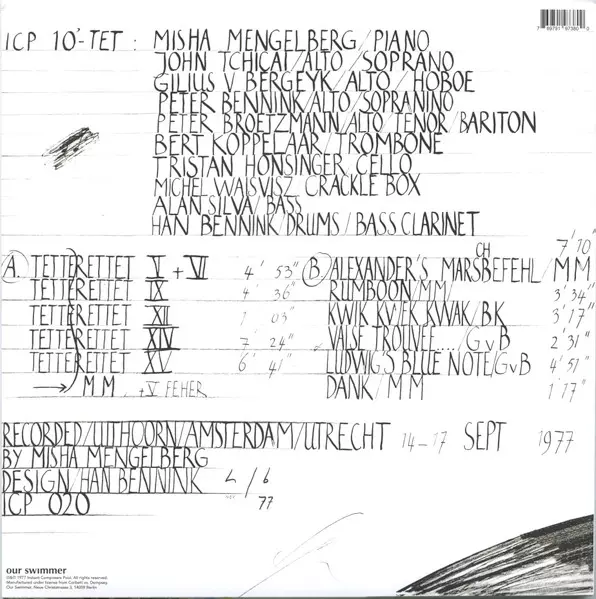 7 69791 97380 0
ICP 10'-TET : MISHA MENGELBERG/PIANO
JOHN TCHICAI/ALTO/SOPRANO
GILIUS V. BERGEYK/ALTO/HOBOE
PETER BENNINK/ALTO/SOPRANINO
PETER BROETZMANN/ALTO/TENOR/BARITON
BERT KOPPELAAR/TROMBONE
TRISTAN HONSINGER CELLO
MICHEL WAISVISZ CRACKLE BOX
ALAN SILVA/BASS
HAN BENNINK/DRUMS/BASSCLARINET
A. TETTERETTET V + VI 4' 53"
TETTERETTET IX 4' 36"
TETTERETTET XII 1' 03"
TETTERETTET XIV 7' 24"
TETTERETTET XV 6' 41"
→ MM. + V FEHER
B. ALEXANDER'S MARSCHBEFEHL/MM 7'10"
RUMBOON/MM/ 3' 34"
KWIK KWEK KWAK/BK 3' 17"
VALSE TROUVEE..../GvB 2' 31"
LUDWIG'S BLUE NOTE/GvB 4' 51"
DANK/MM 1' 17"
RECORDED/UITHOORN/AMSTERDAM/UTRECHT 14-17 SEPT 1977
BY MISHA MENGELBERG
DESIGN/HAN BENNINK 6 77
ICP 020
our swimmer
©&℗ 1977 Instant Composers Pool. All rights reserved.
Manufactured under license from Corbett vs. Dempsey.
Our Swimmer, Neue Christstrasse 3, 14059 Berlin